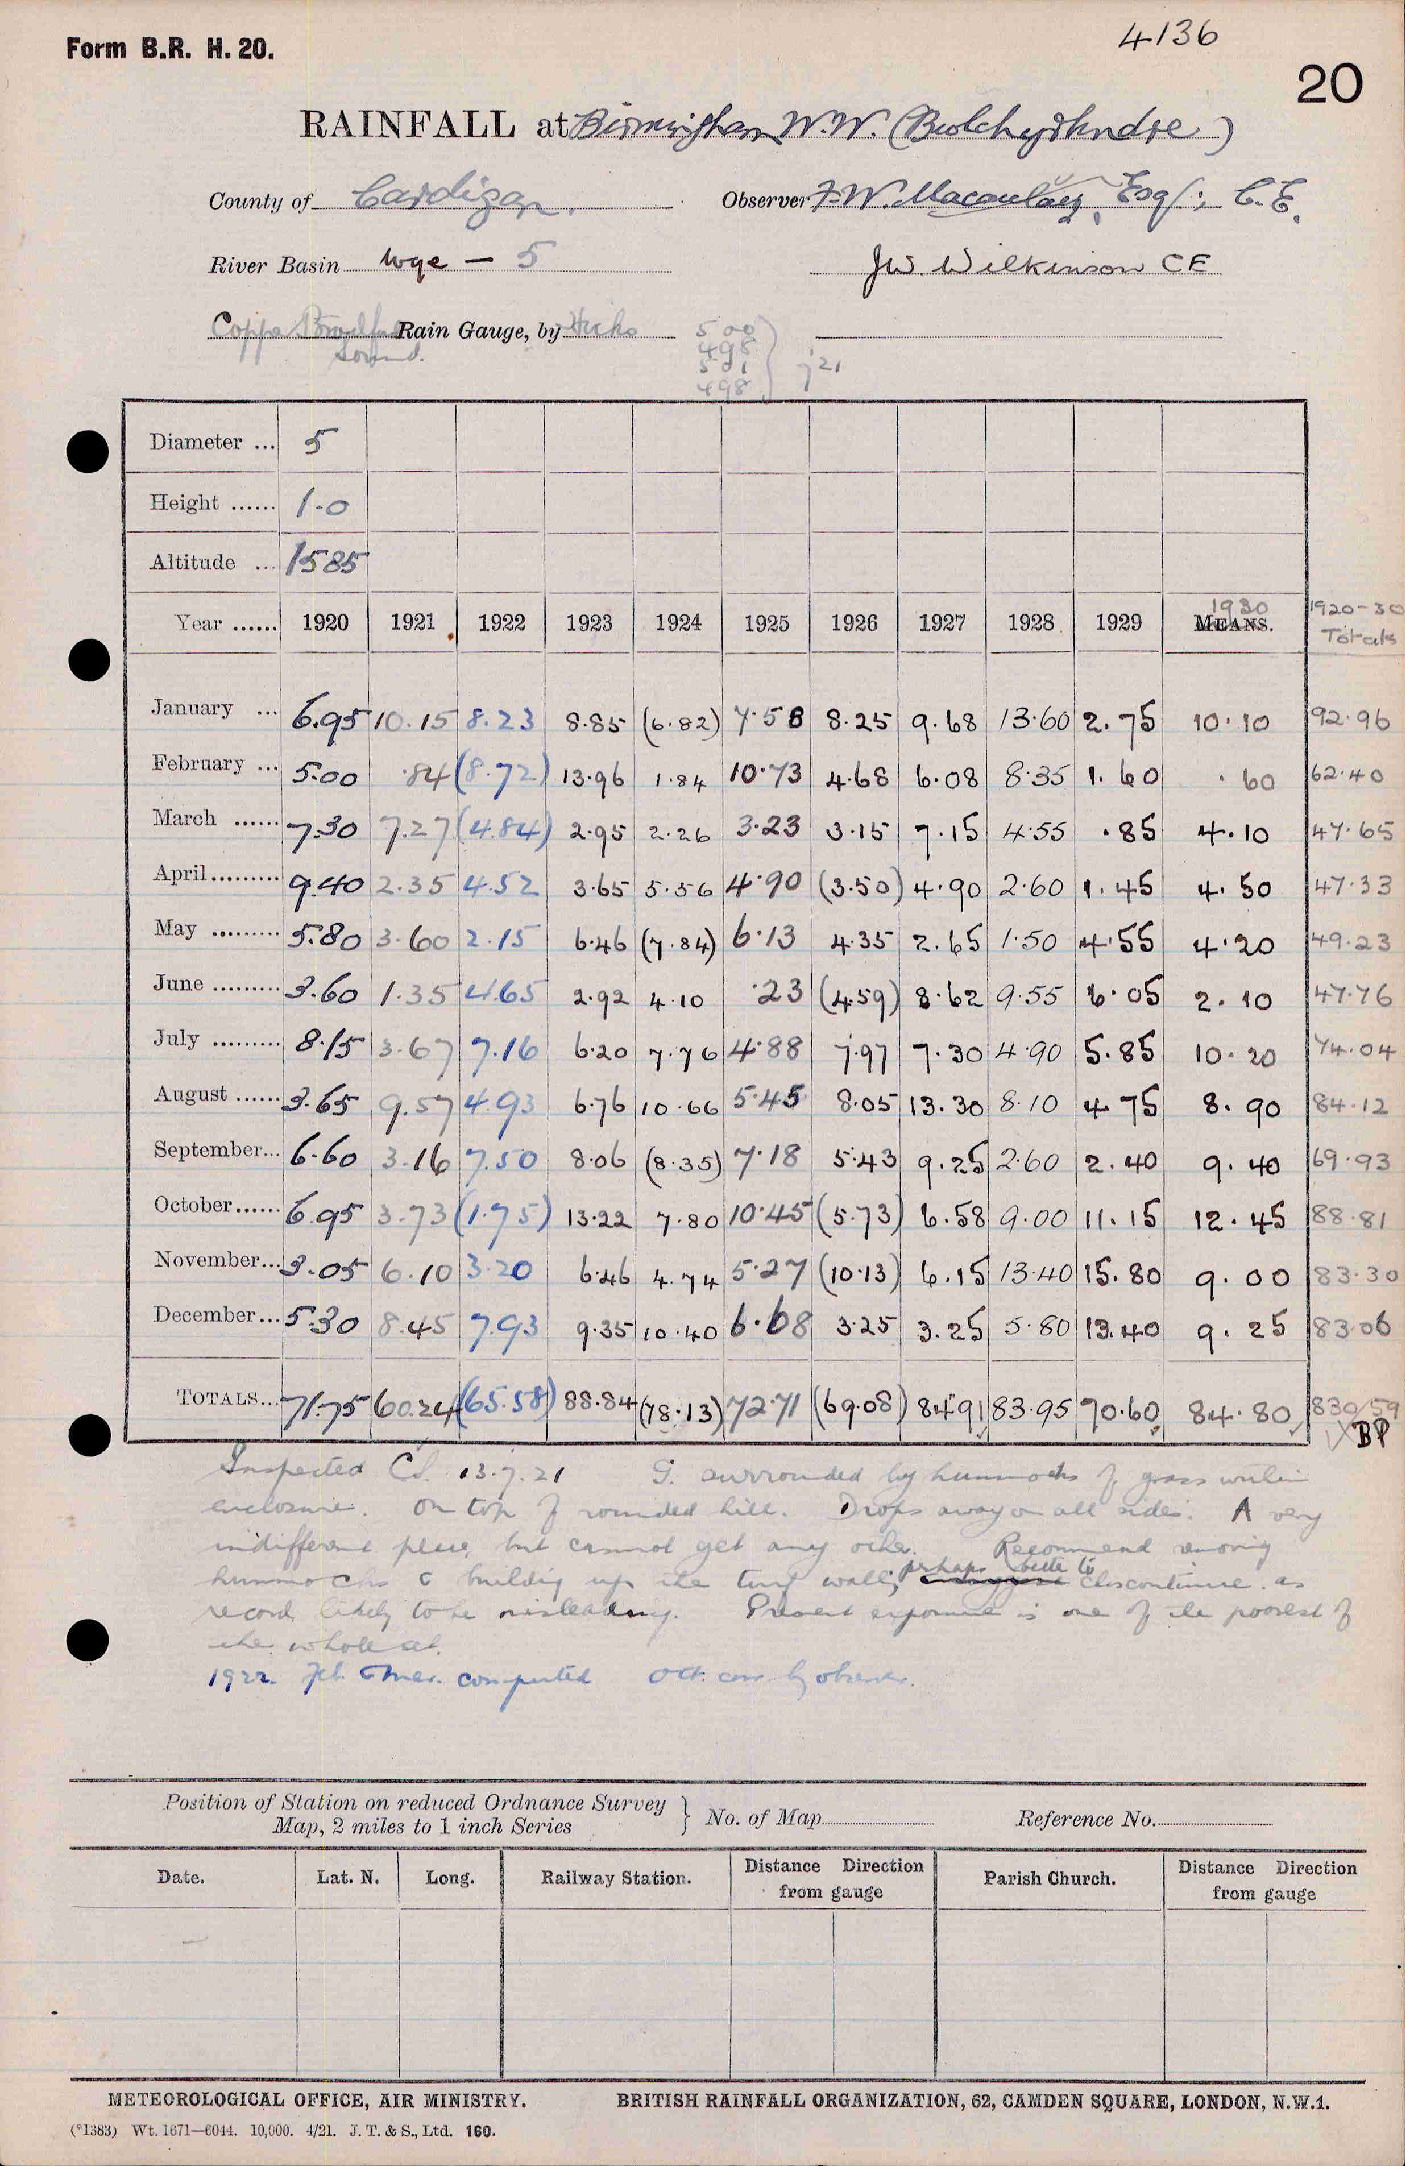 Form B.R. H. 20.
4136
20
RAINFALL at Birmingham W.W. (Bwlchyrhndre)
County of Cardigan. Observer F.W. Macaulay, Esq; C.E.
River Basin Wye — 5 JW. Wilkinson CE
Copper Rain Gauge, by Hicks 500
sound. 498
501 j 21
498
Diameter ... 5
Height ...... 1.0
Altitude ... 1585
Year ...... 1920 1921 1922 1923 1924 1925 1926 1927 1928 1929 MEANS. 1930 1920-30 Totals
January ... 6.95 10.15 8.23 8.85 (6.82) 7.58 8.25 9.68 13.60 2.75 10.10 92.96
February ... 5.00 .84 (8.72) 13.96 1.84 10.73 4.68 6.08 8.35 1.60 .60 62.40
March ...... 7.30 7.27 (4.84) 2.95 2.26 3.23 3.15 7.15 4.55 .85 4.10 47.65
April ......... 9.40 2.35 4.52 3.65 5.56 4.90 (3.50) 4.90 2.60 1.45 4.50 47.33
May ......... 5.80 3.60 2.15 6.46 (7.84) 6.13 4.35 2.65 1.50 4.55 4.20 49.23
June ......... 3.60 1.35 4.65 2.92 4.10 .23 (4.59) 8.62 9.55 6.05 2.10 47.76
July ......... 8.15 3.67 7.16 6.20 7.76 4.88 7.97 7.30 4.90 5.85 10.20 74.04
August ...... 3.65 9.57 4.93 6.76 10.66 5.45 8.05 13.30 8.10 4.75 8.90 84.12
September... 6.60 3.16 7.50 8.06 (8.35) 7.18 5.43 9.25 2.60 2.40 9.40 69.93
October ...... 6.95 3.73 (1.75) 13.22 7.80 10.45 (5.73) 6.58 9.00 11.15 12.45 88.81
November... 3.05 6.10 3.20 6.46 4.74 5.27 (10.13) 6.15 13.40 15.80 9.00 83.30
December ... 5.30 8.45 7.93 9.35 10.40 6.68 3.25 3.25 5.80 13.40 9.25 83.06
TOTALS... 71.75 60.24 (65.58) 88.84 (78.13) 72.71 (69.08) 84.91 83.95 70.60 84.80 830.59
BP
Inspected 13.7.21 G. surrounded by hummocks of grass within
enclosure. On top of rounded hill. Drops away on all sides. A very
indifferent place, but cannot get any other. Recommend removing
hummocks & building up the turf wall, perhaps better to discontinue as
record likely to be misleading. Present exposure is one of the poorest of
the whole set.
1922. Feb. & Mar. computed Oct. corr. by observer.
Position of Station on reduced Ordnance Survey
Map, 2 miles to 1 inch Series } No. of Map Reference No.
Date. Lat. N. Long. Railway Station. Distance Direction from gauge Parish Church. Distance Direction from gauge
METEOROLOGICAL OFFICE, AIR MINISTRY. BRITISH RAINFALL ORGANIZATION, 62, CAMDEN SQUARE, LONDON, N.W.1.
(*1383) Wt. 1671—6044. 10,000. 4/21. J. T. & S., Ltd. 160.